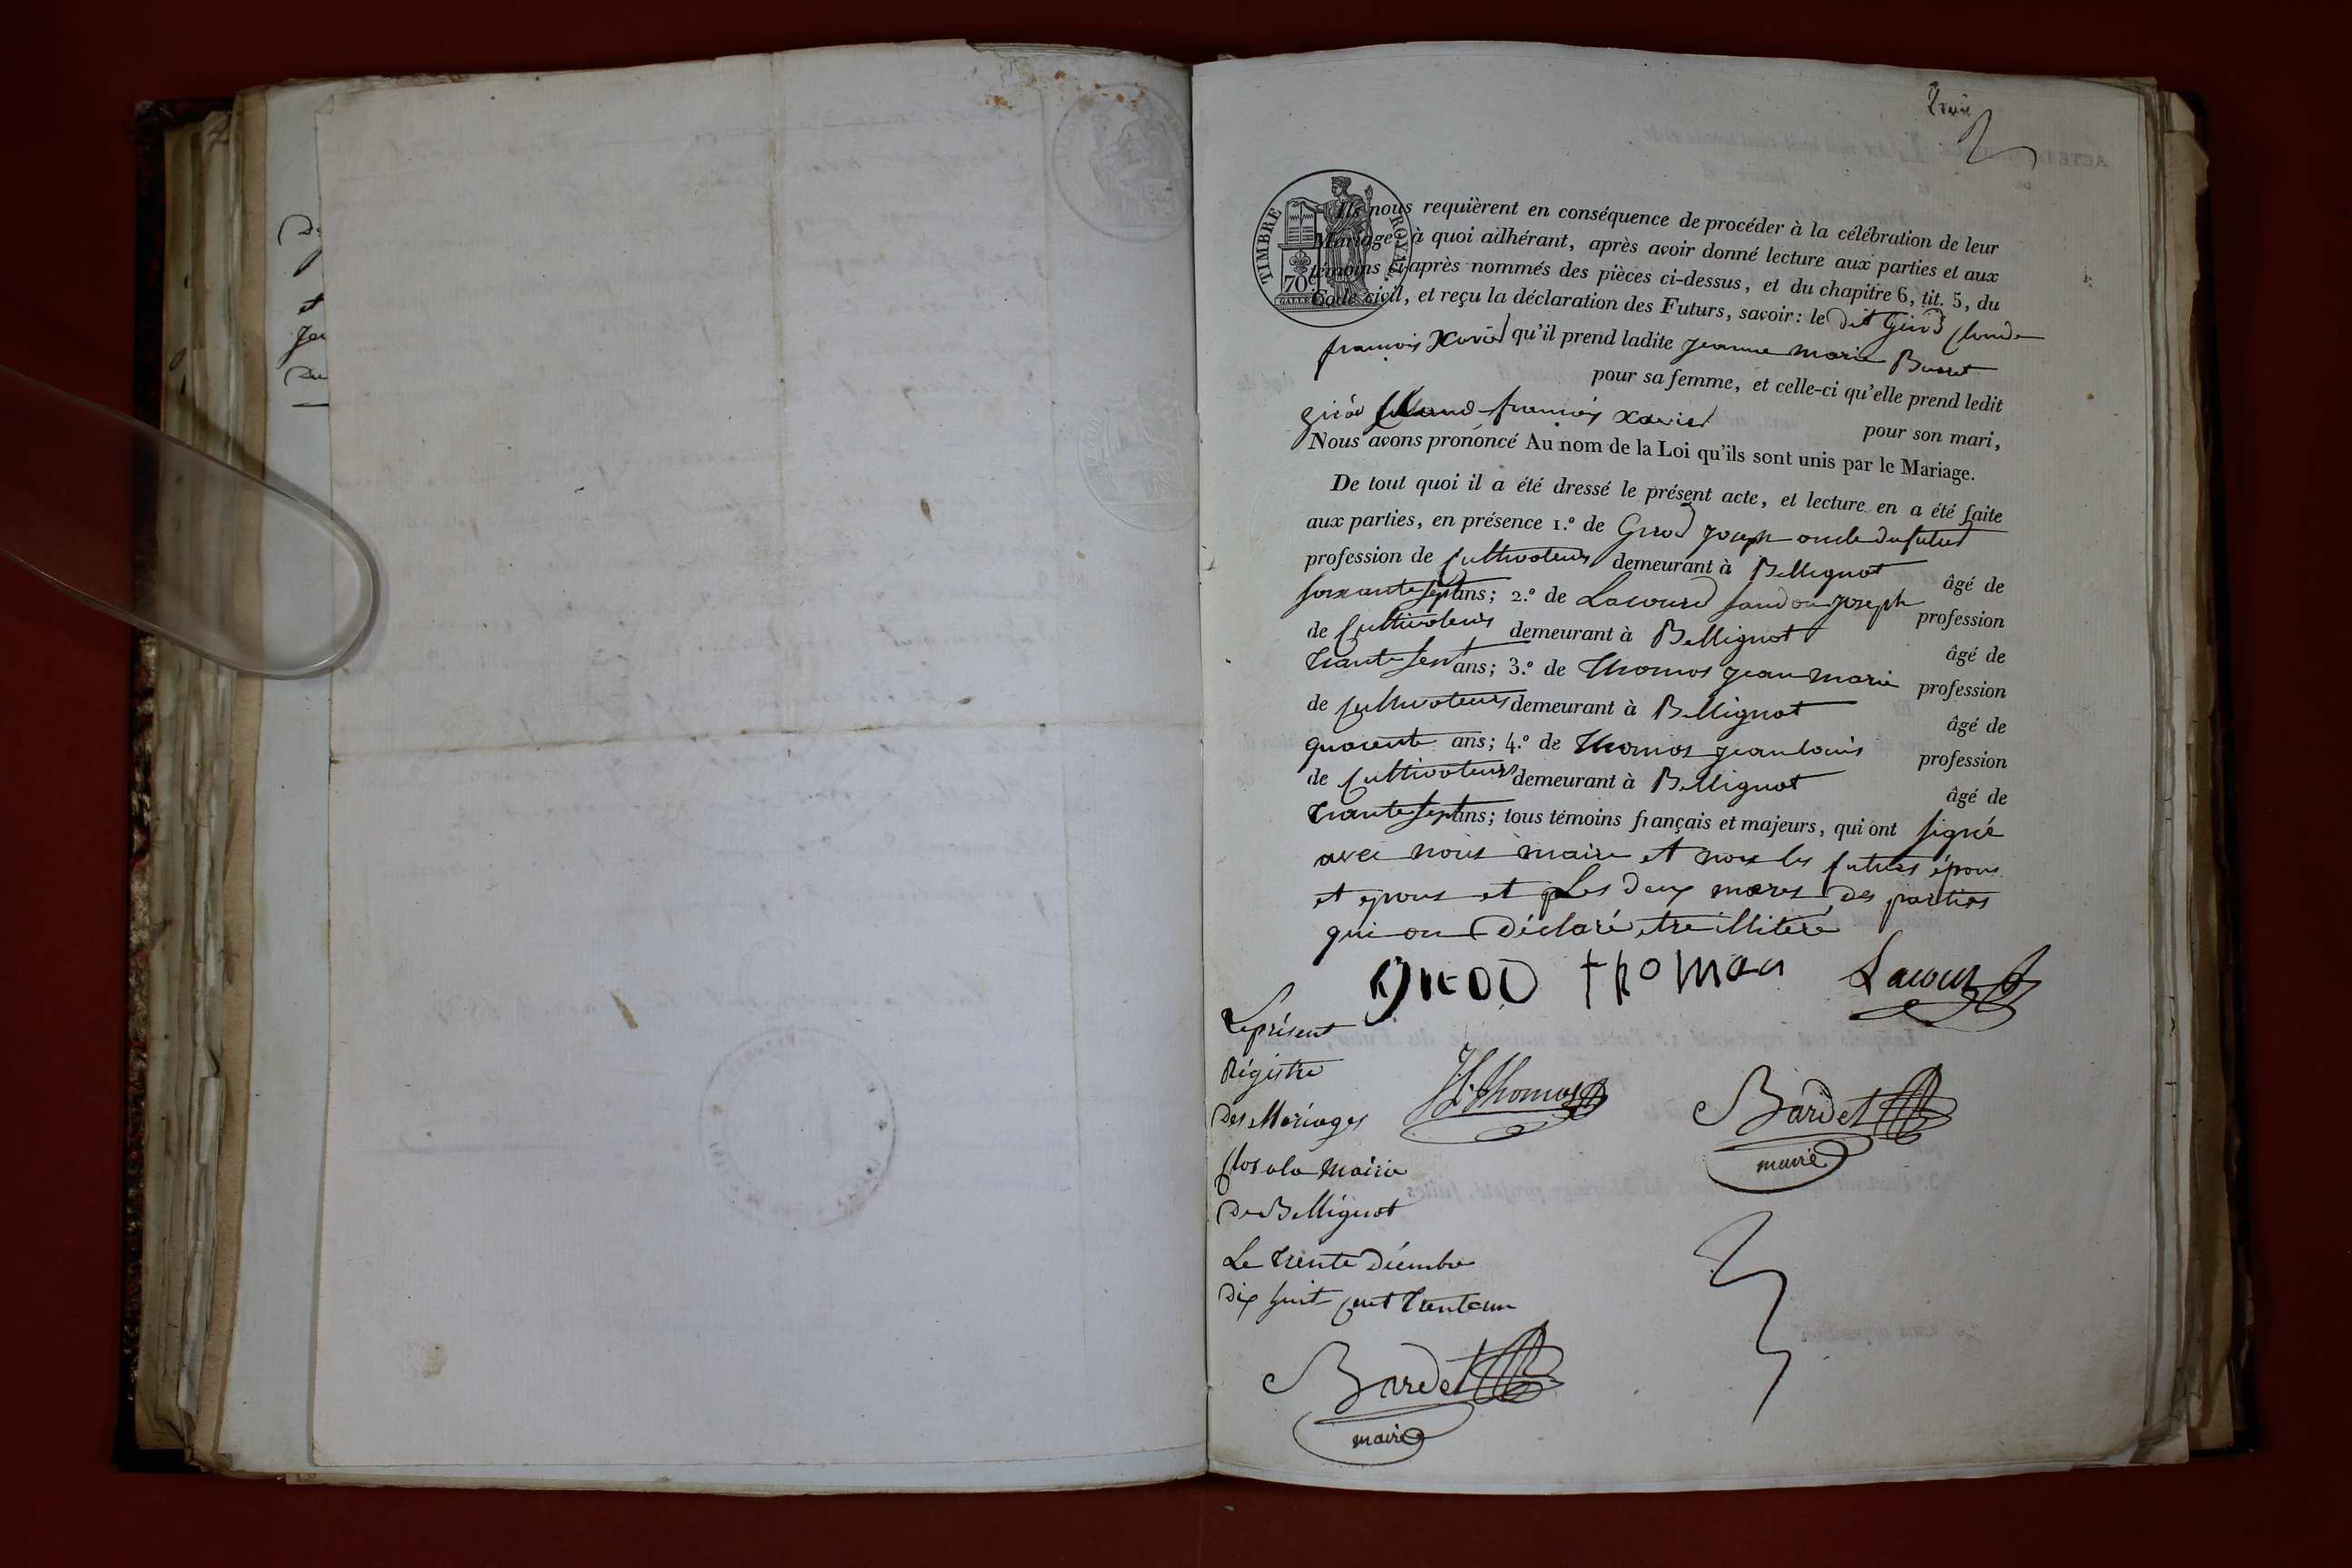 Trois
TIMBRE ROYAL
70c
Ils nous requièrent en conséquence de procéder à la célébration de leur
Mariage; à quoi adhérant, après avoir donné lecture aux parties et aux
témoins ci-après nommés des pièces ci-dessus, et du chapitre 6, tit. 5, du
Code civil, et reçu la déclaration des Futurs, savoir: le dit Girod Claude
françois Xavier qu'il prend ladite jeanne marie
pour sa femme, et celle-ci qu'elle prend ledit
girod Claud françois Xavier pour son mari,
Nous avons prononcé Au nom de la Loi qu'ils sont unis par le Mariage.
De tout quoi il a été dressé le présent acte, et lecture en a été faite
aux parties, en présence 1.º de Girod joseph oncle du futur
profession de Cultivateur demeurant à Bellignat âgé de
soixante sept ans; 2.º de Lacourd joseph profession
de Cultivateur demeurant à Bellignat âgé de
trante sept ans; 3.º de Thomas jean marie profession
de Cultivateur demeurant à Bellignat âgé de
quarente ans; 4.º de Thomas jean louis profession
de Cultivateur demeurant à Bellignat âgé de
trante sept ans; tous témoins français et majeurs, qui ont signé
avec nous maire et non les futurs épous
et epous et Les deux mères des parties
qui on déclaré etre illiteré
girod thomas Lacour
Le présent
Régistre
Des Mariages
Clos a la Mairie
De Bellignat
Le trente Décembre
Dix huit cent trente un
J.L. Thomas
Bardet
maire
Bardet
maire